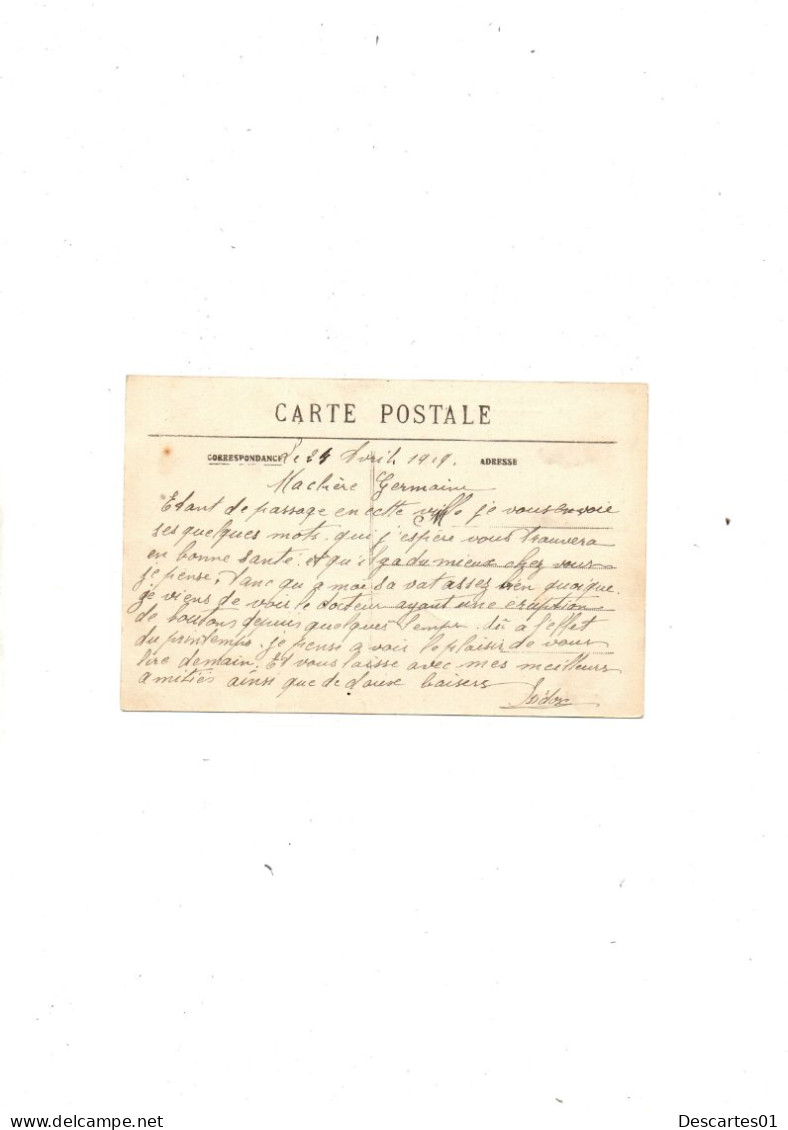 CARTE POSTALE
CORRESPONDANCE Le 24 Avril 1919. ADRESSE
Machère Germaine
Etant de passage en cette ville je vous envoie
ses quelques mots. qui j'espère vous trouvera
en bonne santé. et qu'il y a du mieux chez vous
je pense, tanc qu a moi sa vat assez bien quoique.
je viens de voir le docteur ayant une eruption
de boutons depuis quelques temps. dû à l'effet
du printemps. je pense avoir le plaisir de vous
lire demain. Et vous laisse avec mes meilleurs
amitiés ainsi que de doux baisers
Isidore
Descartes01